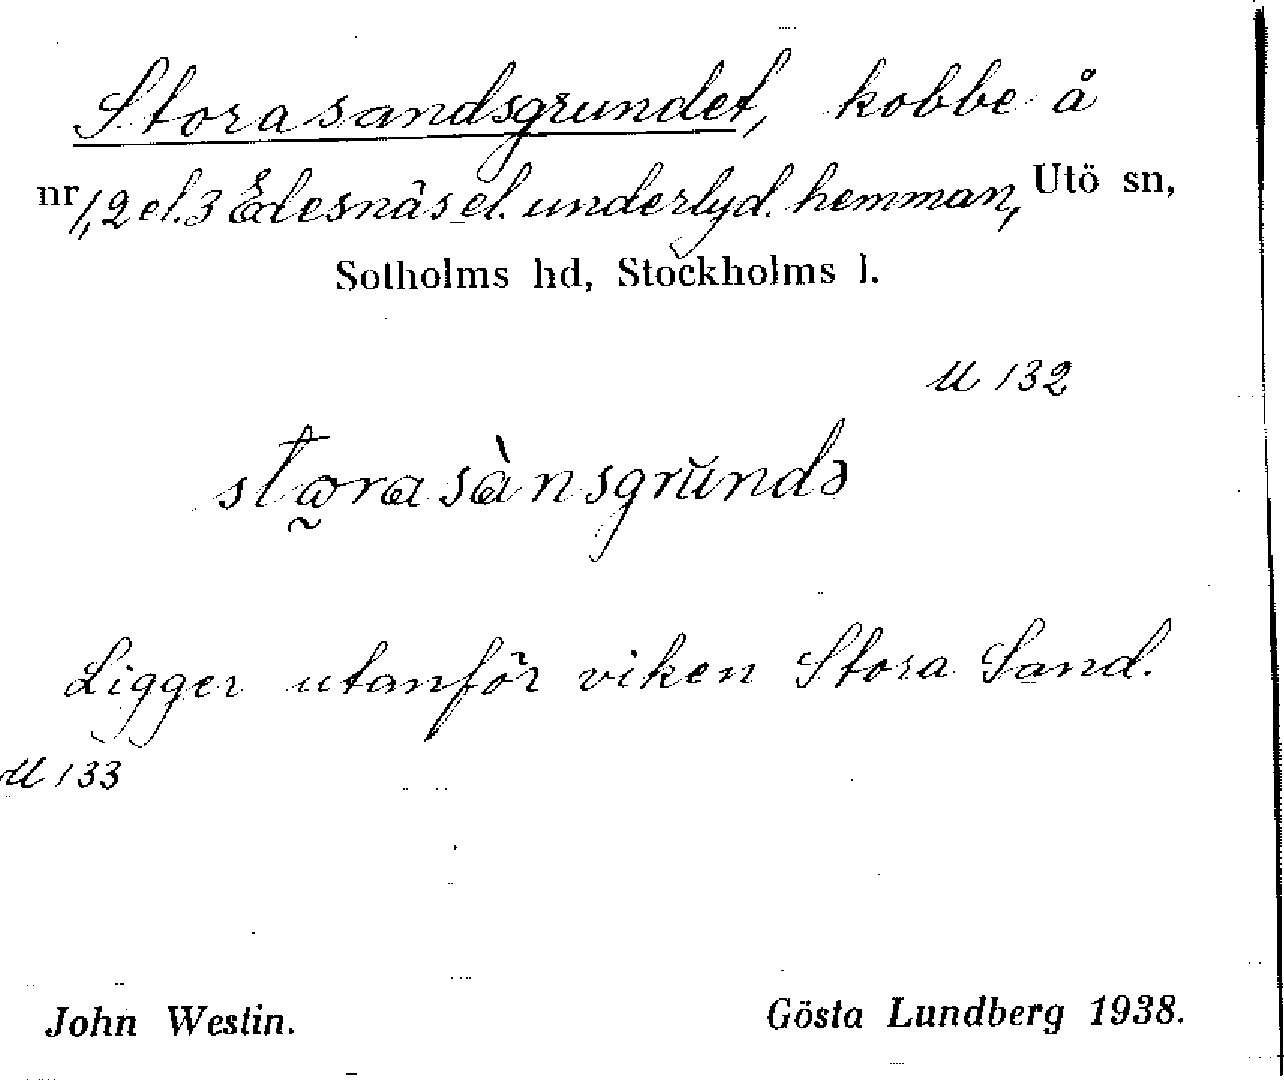 Storasandsgrundet, kobbe å
nr 1, 2 el. 3 Edesnäs el. underlyd. hemman, Utö sn,
Sotholms hd, Stockholms l.
U 132
storasànsgrŭndə
Ligger utanför viken Stora Sand.
U 133
John Westin. Gösta Lundberg 1938.